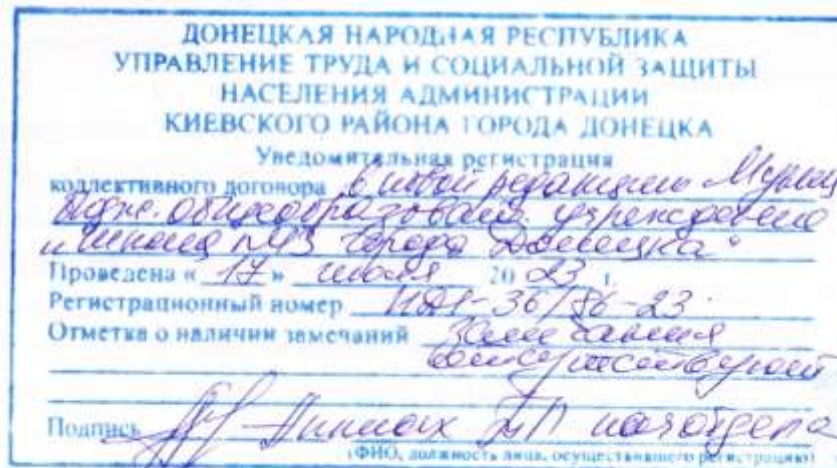 ДОНЕЦКАЯ НАРОДНАЯ РЕСПУБЛИКА
УПРАВЛЕНИЕ ТРУДА И СОЦИАЛЬНОЙ ЗАЩИТЫ
НАСЕЛЕНИЯ АДМИНИСТРАЦИИ
КИЕВСКОГО РАЙОНА ГОРОДА ДОНЕЦКА
Уведомительная регистрация
коллективного договора в новой редакции Муниц
бюдж. общеобразоват. учреждение
"Школа города Донецка"
Проведена « 17 » 20 23 г.
Регистрационный номер
Отметка о наличии замечаний Замечания
отсутствуют
Подпись нач отдела
(ФИО, должность лица, осуществившего регистрацию)